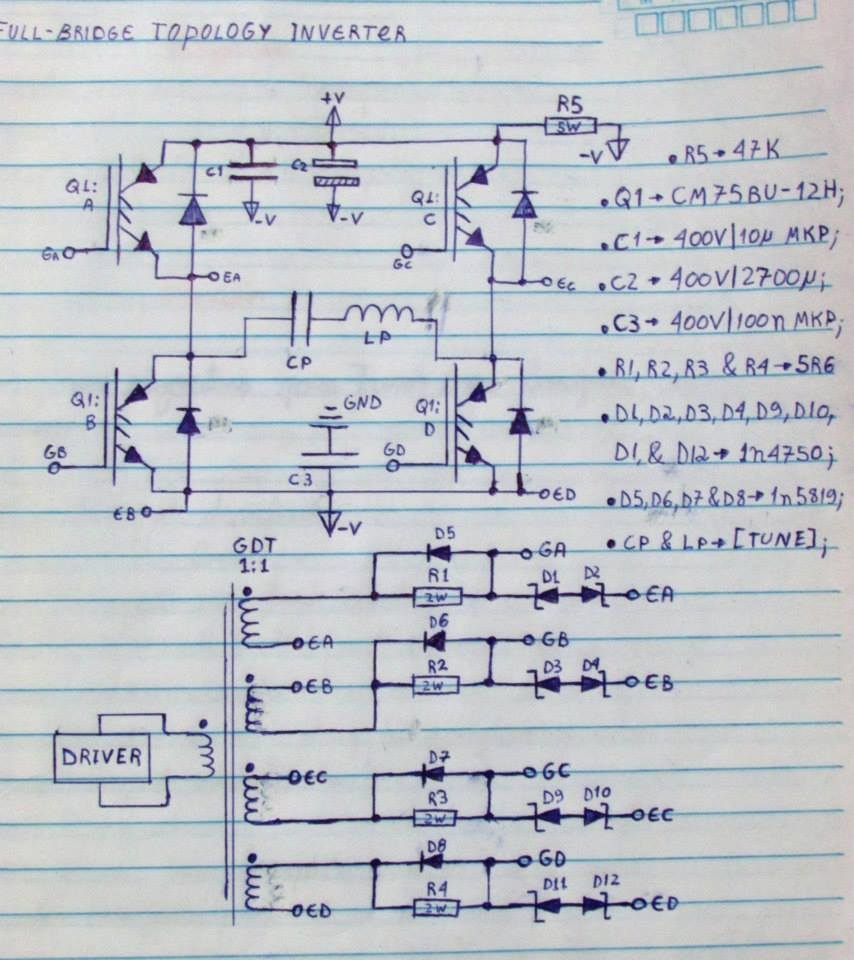 FULL-BRIDGE TOPOLOGY INVERTER
+V
R5
5W
-V
C1
C2
Q1:
A
-V
-V
Q1:
C
GA
EA
GC
EC
CP
LP
Q1:
B
GND
Q1:
D
GB
GD
C3
EB
-V
ED
• R5→47K
• Q1→CM75BU-12H;
• C1→400V/10µ MKP;
• C2→400V/2700µ;
• C3→400V/100n MKP;
• R1, R2, R3 & R4→5R6
• D1, D2, D3, D4, D9, D10,
D1, & D12→1n4750;
• D5, D6, D7 & D8→1n5819;
• CP & LP→[TUNE];
GDT
1:1
DRIVER
D5
GA
R1
2W
D1
D2
EA
EA
D6
GB
EB
R2
2W
D3
D4
EB
D7
GC
EC
R3
2W
D9
D10
EC
D8
GD
R4
2W
D11
D12
ED
ED